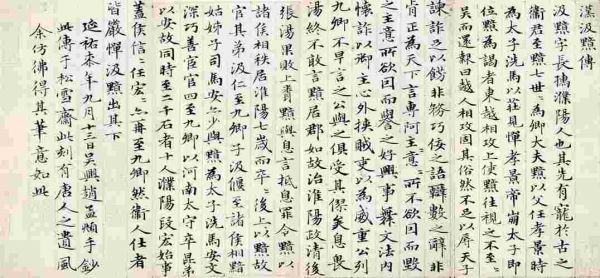 漢汲黯傳
汲黯字長孺濮陽人也其先有寵於古之
衛君至黯七世〻為卿大夫黯以父任孝景時
為太子洗馬以莊見憚孝景帝崩太子即
位黯為謁者東越相攻上使黯往視之不至〻
吳而還報曰越人相攻固其俗然不足以辱天子
諫詐足以飾非務巧佞之語辯數之辭非
肯正為天下言專阿主意〻所不欲因而毀
之主意所欲因而譽之好興事舞文法內
懷詐以御主心外挾賊吏以為威重公列
九卿不早言之公與之俱受其僇矣息畏
湯終不敢言黯居郡如故治淮陽政清後
張湯果敗上聞黯與息言抵息罪令黯以
諸侯相秩居淮陽七歲而卒〻後上以黯故
官其弟汲仁至九卿子汲偃至諸侯相黯
姑姊子司馬安少與黯為太子洗馬安文
深巧善宦官四至九卿以河南太守卒昆弟
以安故同時至二千石者十人濮陽段宏始事
蓋侯信〻任宏〻亦再至九卿然衛人仕者
皆嚴憚汲黯出其下
延祐柒年九月十三日吳興趙孟頫手鈔
此傳于松雪齋此刻有唐人之遺風
余仿佛得其筆意如此